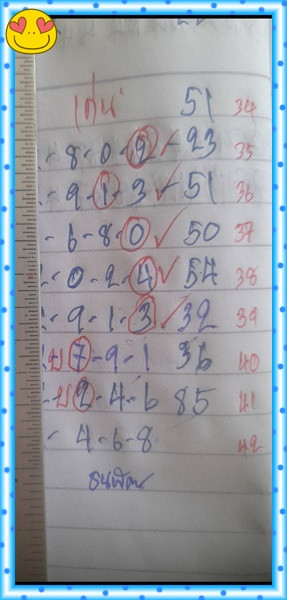 เด่น 51 34
8-0-2 ✓ 23 35
9-1-3 ✓ 51 36
- 6-8-0 ✓ 50 37
- 0-2-4 ✓ 54 38
- 9-1-3 ✓ 32 39
บ 7-9-1 36 40
บ 2-4-6 85 41
- 4-6-8 42